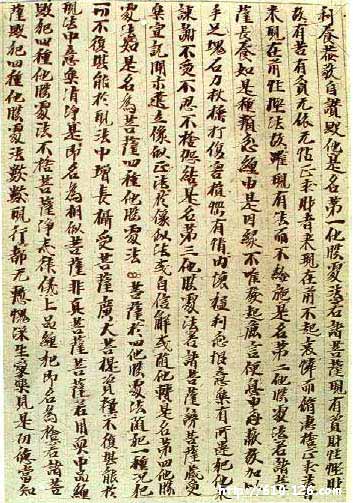 利養恭敬自讚毀他是名第一他勝處法若諸菩薩現有資財性慳財
故有苦有貧无依无怙正求財者來現在前不起哀憐而修惠捨正求法者
來現在前性慳法故雖現有法而不給施是名第二他勝處法若諸菩
薩長養如是種類忿纏由是因緣不唯發起麁言便息由忿蔽故加以
手足塊石刀杖捶打傷害損惱有情內懷猛利忿恨意樂有所違犯他來
諫謝不受不忍不捨怨結是名第三他勝處法若諸菩薩謗菩薩藏愛
樂宣說開示建立像似正法於像似法或自信解或隨他轉是名第四他勝
處法如是名為菩薩四種他勝處法菩薩於四他勝處法隨犯一種況犯
一切不復堪能於現法中增長攝受菩薩廣大菩提資糧不復堪能於
現法中意樂清淨是即名為相似菩薩非真菩薩菩薩若用耎中品纏
毀犯四種他勝處法不捨菩薩淨戒律儀上品纏犯即名為捨若諸菩
薩毀犯四種他勝處法數數現行都无慚愧深生愛樂見是功德當知
http://510.126.com